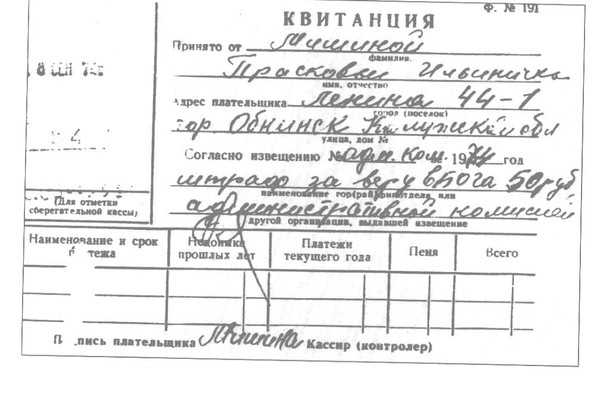 Ф. № 191
КВИТАНЦИЯ
Принято от Мишиной
фамилия.
Прасковьи Ильиничны
имя, отчество
Адрес плательщика Ленина 44-1
город (поселок)
гор Обнинск Калужской обл
улица, дом №
Согласно извещению № адм. ком. 1974 год
штраф за веру в Бога 50 руб
наименование гор(рай)финотдела или
административной комиссией
другой организации, выдавшей извещение
(Для отметки
сберегательной кассы)
Наименование и срок
платежа
Недоимка
прошлых лет
Платежи
текущего года
Пеня
Всего
Подпись плательщика Мишина Кассир (контролер)